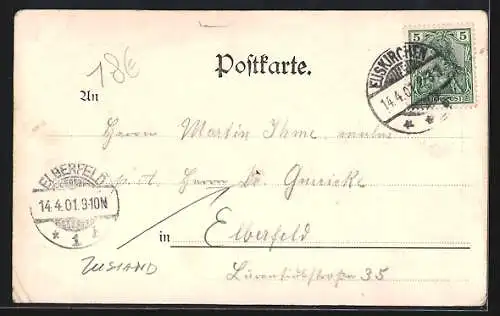 5
EUSKIRCHEN
14.4.01
18€
Postkarte.
An
Herrn Martin Ihme
Herrn Dr.
ELBERFELD
14.4.01.9-10N
* 1
in Elberfeld
ZUSTAND
35